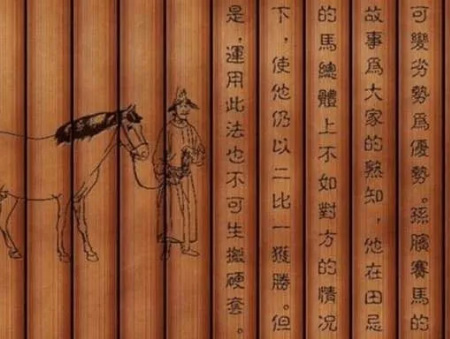 可變劣勢爲優勢。孫臏賽馬的
故事爲大家的熟知，他在田忌
的馬總體上不如對方的情况
下，使他仍以二比一獲勝。但
是，運用此法也不可生搬硬套。